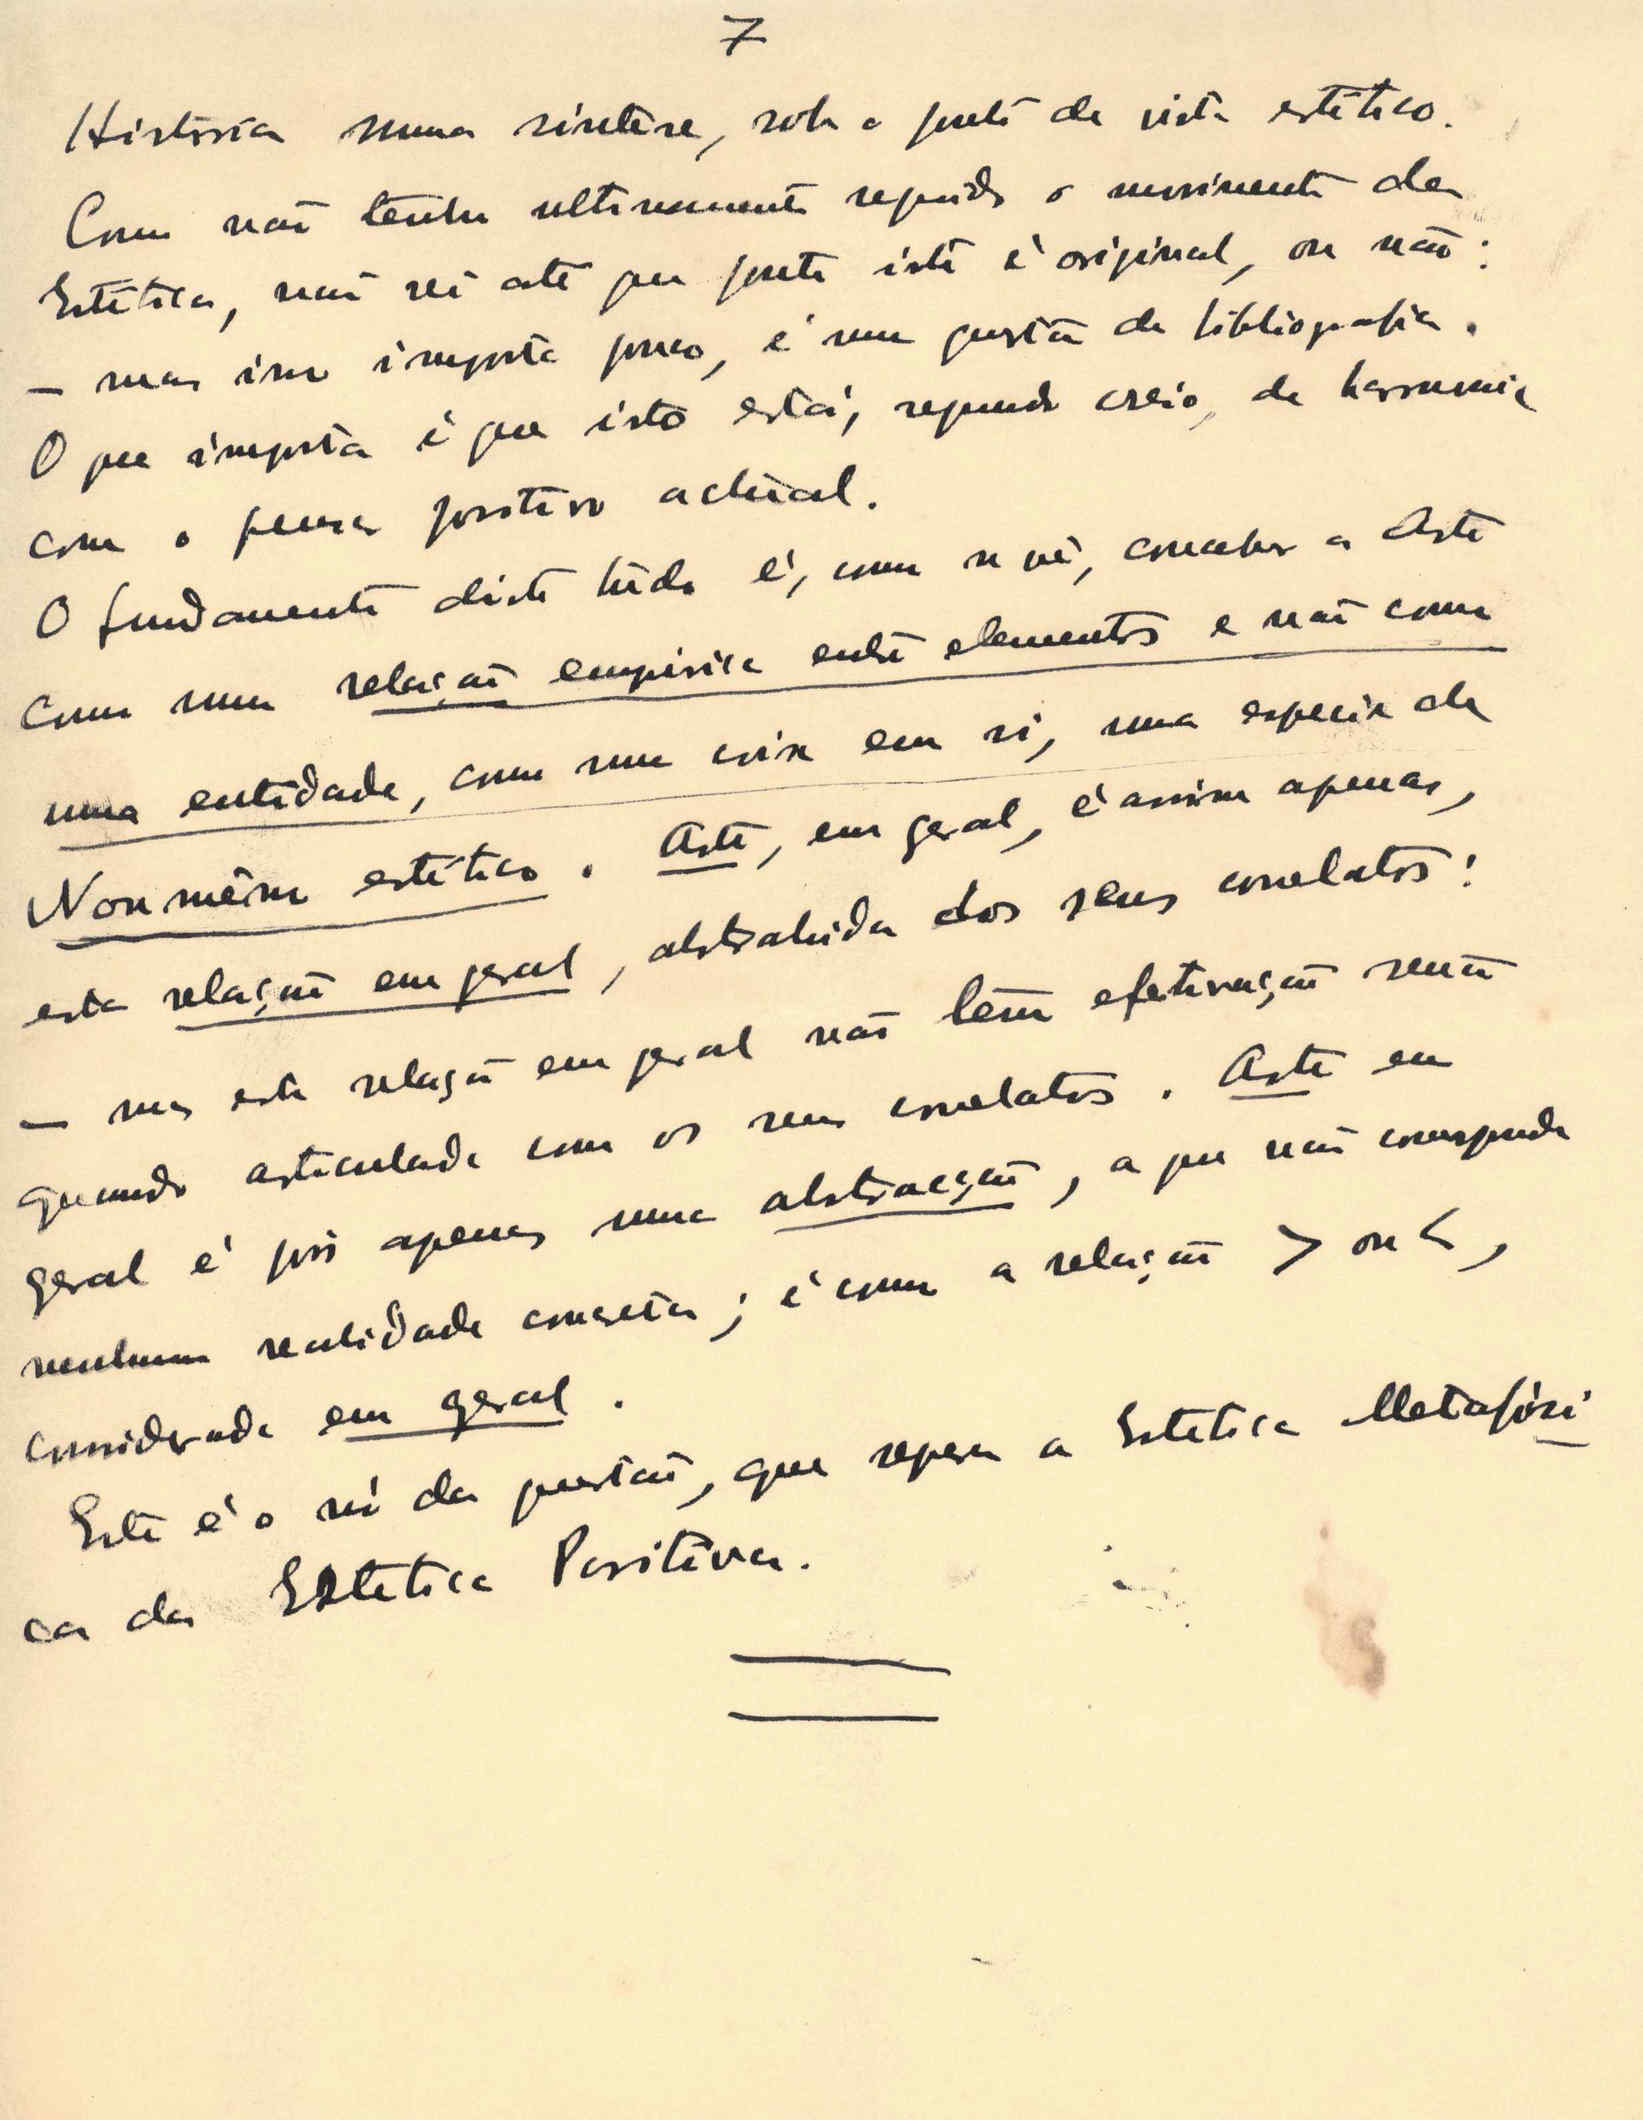 7
Historia numa sintese, sob o ponto de vista estético.
Como não tenho ultimamente seguido o movimento da
Estética, não sei até que ponto isto é original, ou não:
— mas isso importa pouco, é uma questão de bibliografia.
O que importa é que isto está, segundo creio, de harmonia
com o pensar positivo actual.
O fundamento disto tudo é, como se vê, conceber a Arte
como uma relação empirica entre elementos e não como
uma entidade, como uma coisa em si, uma especie de
Noumêno estético. Arte, em geral, é assim apenas,
esta relação em geral, abstrahida dos seus correlatos:
— mas esta relação em geral não têm efectivação senão
quando articulada com os seus correlatos. Arte em
geral é pois apenas uma abstracção, a que não corresponde
nenhuma realidade concreta; é como a relação > ou <,
considerada em geral.
Este é o nó da questão, que separa a Estetica Metafísi
ca da Estetica Positiva.